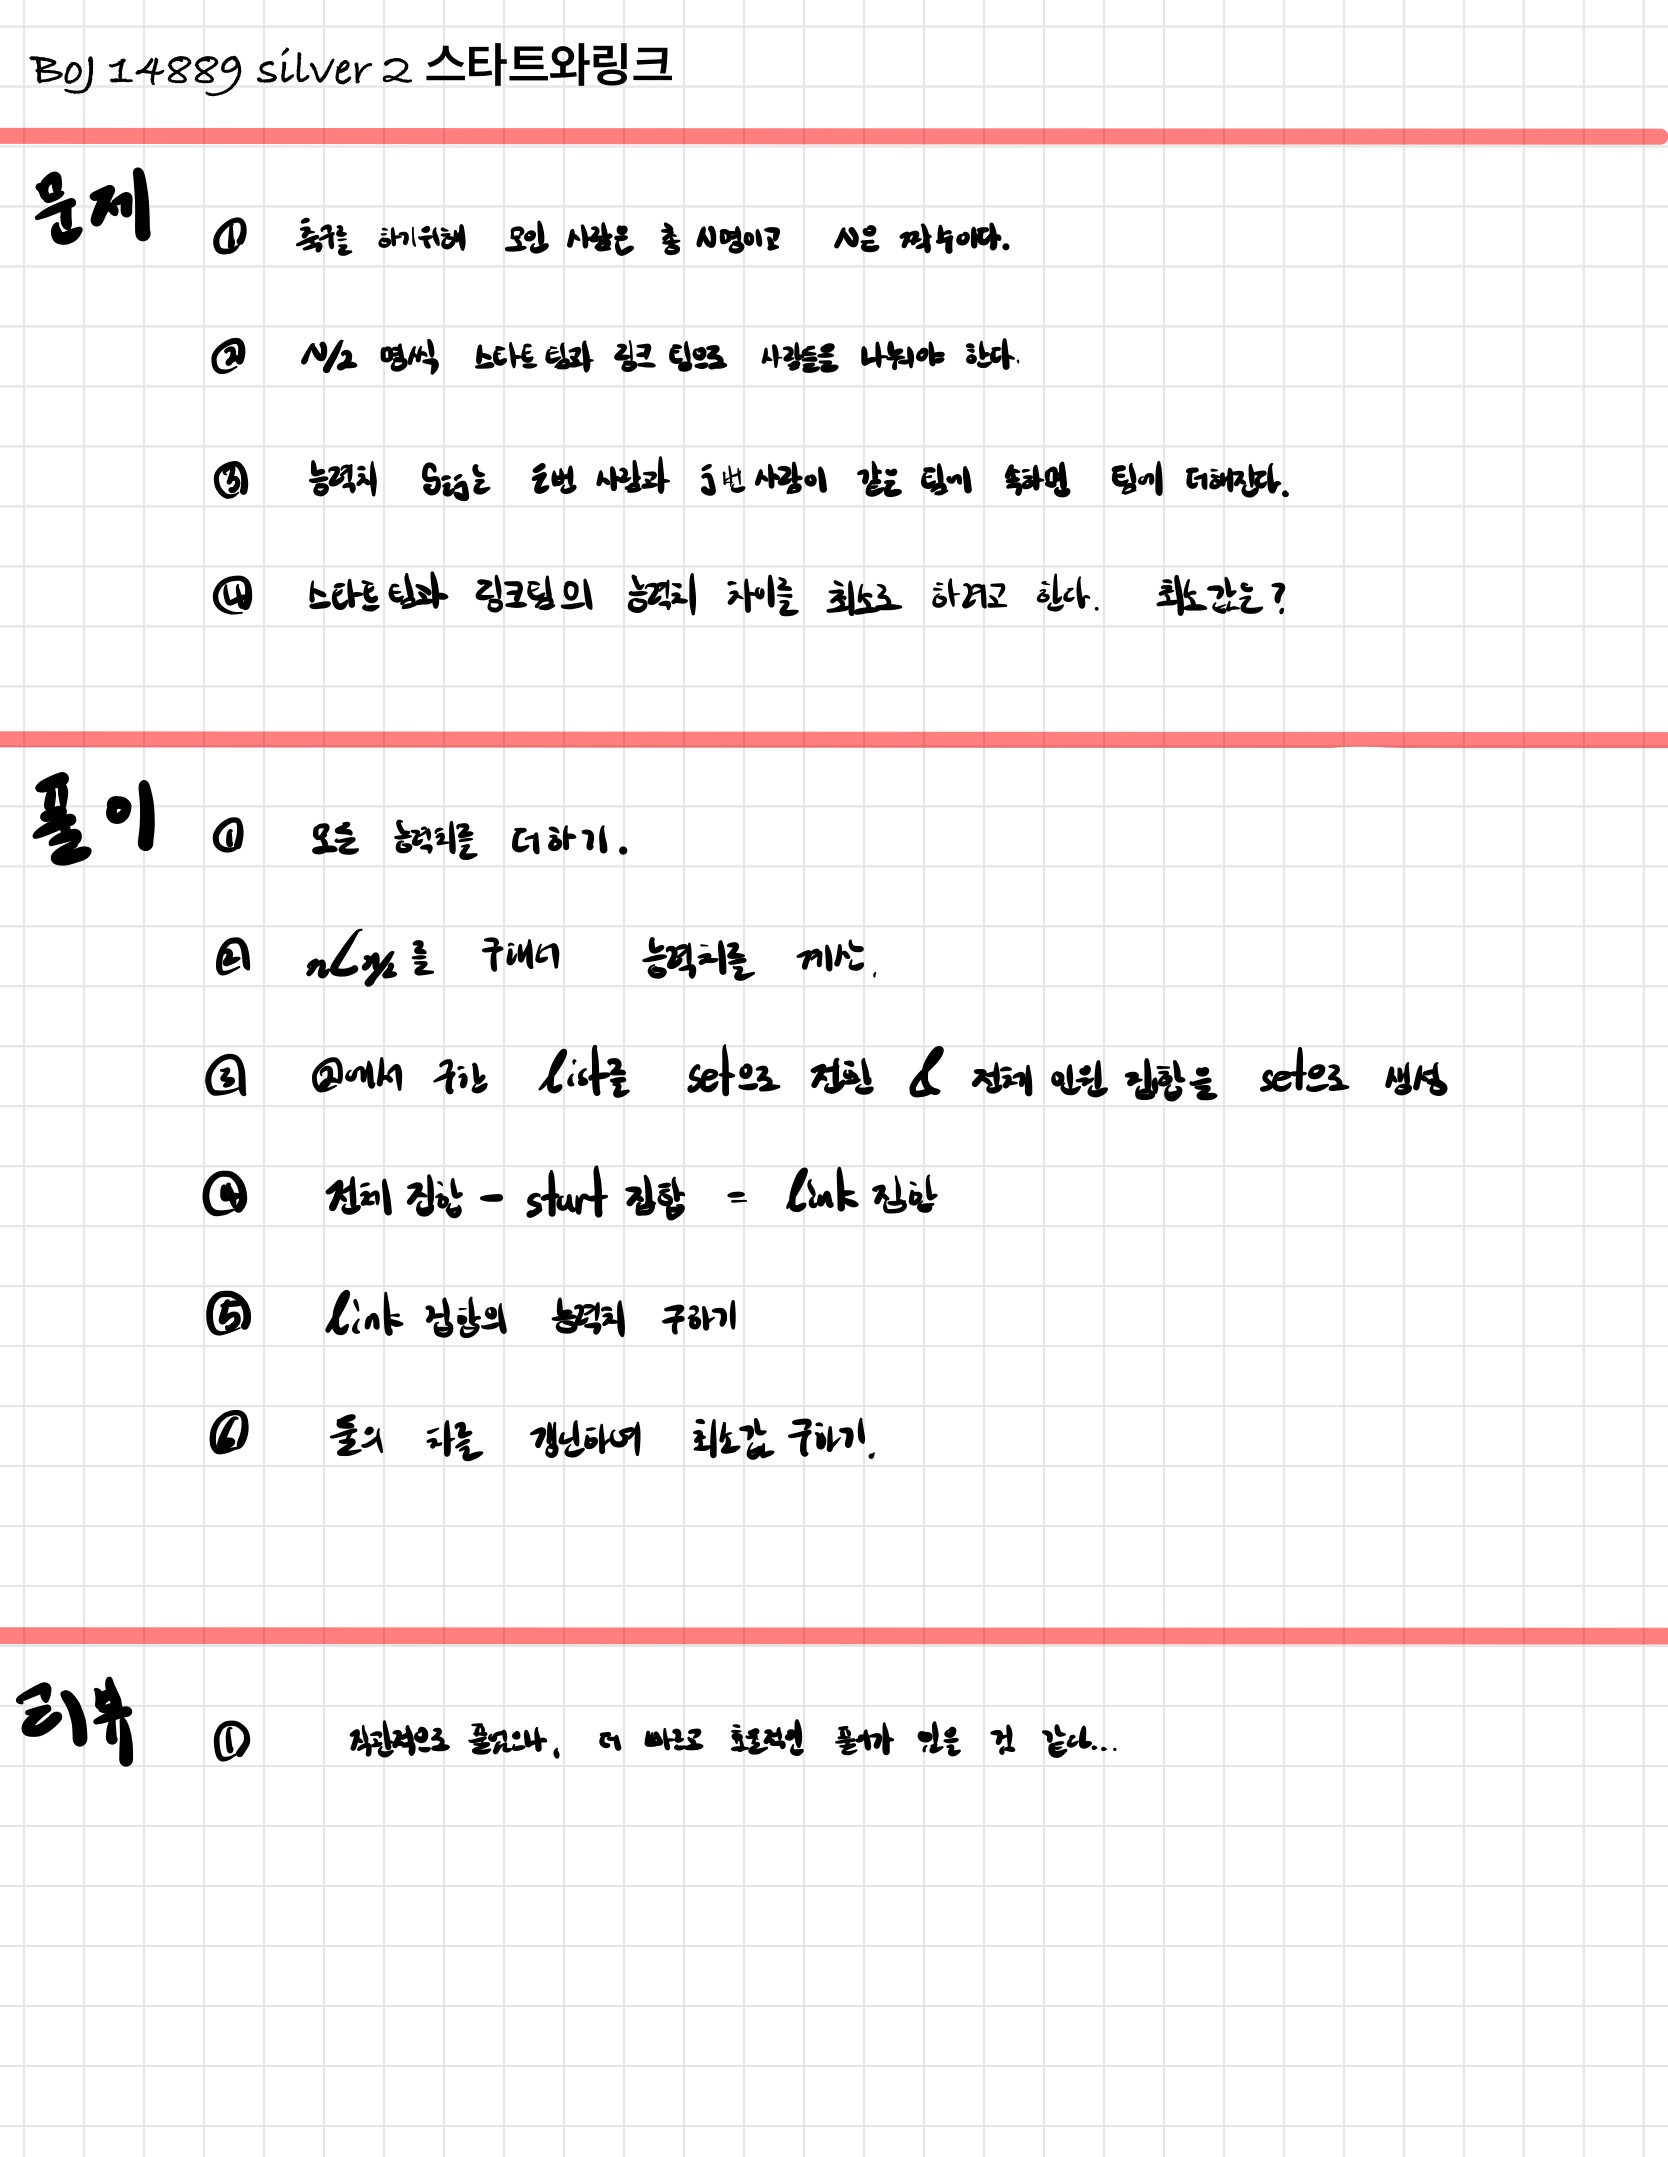 BOJ 14889 silver 2 스타트와링크
문제
① 축구를 하기위해 모인 사람은 총 N명이고 N은 짝수이다.
② N/2 명씩 스타트팀과 링크 팀으로 사람들을 나눠야 한다.
③ 능력치 Sij는 i번 사람과 j번 사람이 같은 팀에 속하면 팀에 더해진다.
④ 스타트팀과 링크팀의 능력치 차이를 최소로 하려고 한다. 최소값은?
풀이
① 모든 능력치를 더하기.
② nCn/2를 구해서 능력치를 계산.
③ ②에서 구한 list를 set으로 전환 & 전체 인원 집합을 set으로 생성
④ 전체 집합 - start 집합 = link 집합
⑤ link 집합의 능력치 구하기
⑥ 둘의 차를 갱신하며 최소값 구하기.
리뷰
① 직관적으로 풀었으나, 더 빠르고 효율적인 풀이가 있을 것 같다...